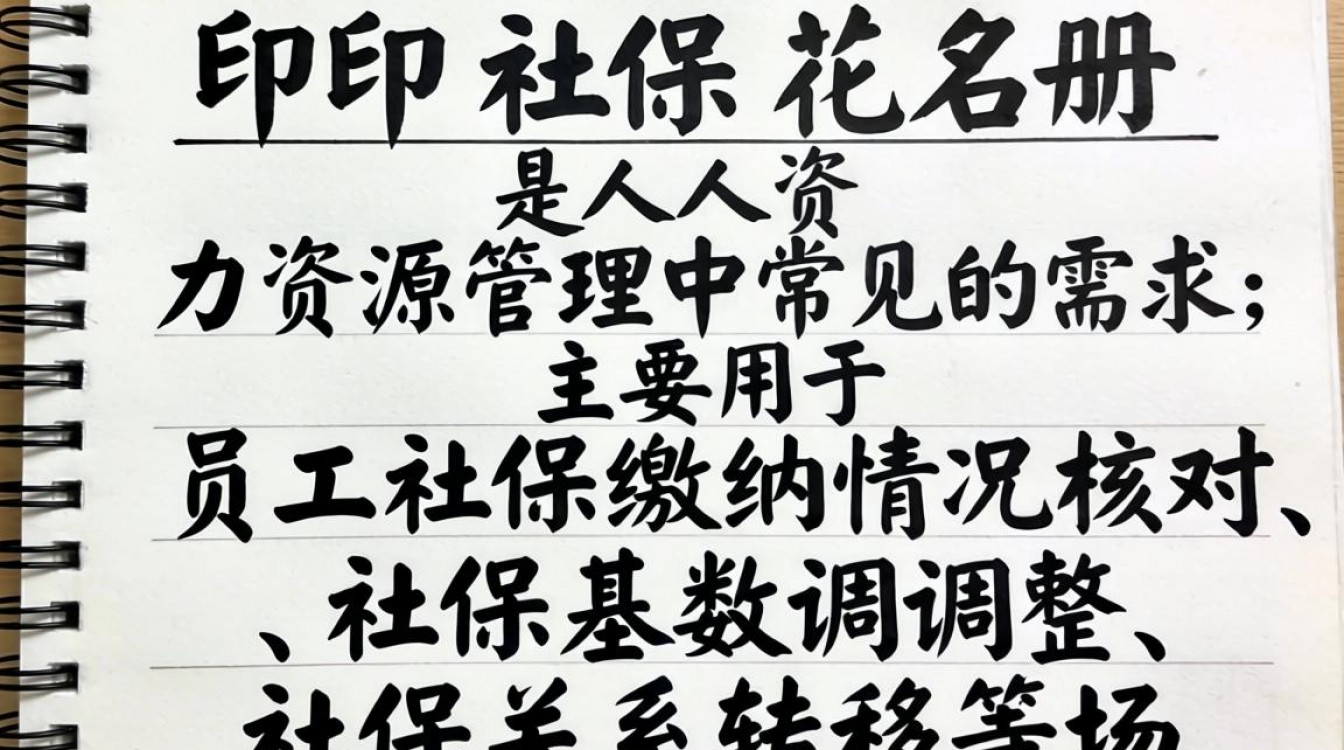 印印社保花名册
是人人资
力资源管理中常见的需求；
主要用于
员工社保缴纳情况核对、
、社保基数调调整、
社保关系转移等场